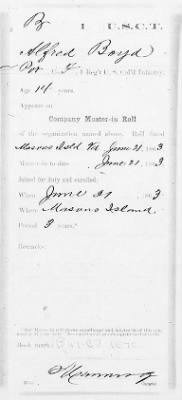 B 1 U.S.C.T.
Alfred Boyd
Pvt, Co. F, 1 Reg't U. S. Col'd Infantry.
Age 18 years.
Appears on
Company Muster-in Roll
of the organization named above. Roll dated
Masons Isld Va June 21, 1863
Muster-in to date June 21, 1863
Joined for duty and enrolled:
When June 21, 1863
Where Masons Island.
Period 3 years.*
Remarks:
Book mark: